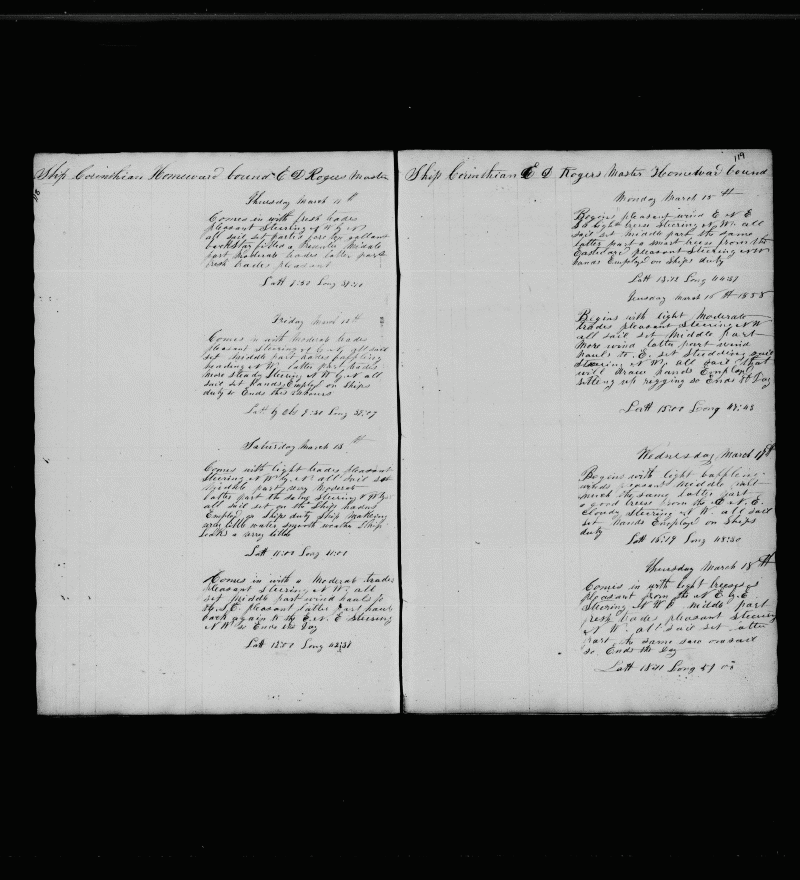 Ship Corinthian Homeward bound E D Rogers Master
118
Thursday March 11th
Comes in with fresh trades
pleasant Steering N W by N
all sail set parties
backstay fitted a Middle
part Moderate trades latter part
fresh trades pleasant
Latt 7:52 Long
Friday March 12th
Comes in with Moderate trades
pleasant steering N all sail
set Middle part trades baffling
heading N W latter part trades
more steady Steering N W by N all
sail set hands Employ on Ships
duty so Ends this
Latt by Obs 9:30 Long
Saturday March 13th
Comes with light trades pleasant
Steering N W by N all sail set
Middle part very Moderate
latter part the same Steering N W by
all sail set on the Ship hands
Employ on Ships duty Ship Making
very little water smooth weather Ship
leaks a very little
Latt 11:00 Long 41:01
Comes in with a Moderate trades
pleasant Steering N W all
sail set Middle part wind hauls to
the S. E. pleasant latter part hauls
back again to the E. N. E Steering
N W so Ends the Day
Latt 12:01 Long 42:31
Ship Corinthian E D Rogers Master Homeward bound
119
Monday March 15th
Begins pleasant wind E N E
a light breeze Steering N W. all
sail set Middle part the same
latter part a smart breeze from the
Eastward pleasant Steering N W
hands Employ on Ships duty
Latt 13:21 Long 44:37
Tuesday March 16th 1858
Begins with light Moderate
trades pleasant Steering N W
all sail set Middle part
More wind latter part wind
hauls to E. set Studding sail
Steering N W all sail that
will draw hands Employ
setting up rigging so Ends the Day
Latt 15:00 Long 47:43
Wednesday March 17th
Begins with light baffling
winds pleasant middle part
much the same latter part
a good breeze from the E N. E.
Cloudy Steering N W. all sail
set hands Employ on Ships
duty
Latt 16:19 Long 48:50
Thursday March 18th
Comes in with light breezes
pleasant from the N E by E
Steering N W Middle part
fresh trades pleasant Steering
N W. all sail set latter
part the same
so Ends the Day
Latt 18:21 Long 51 00